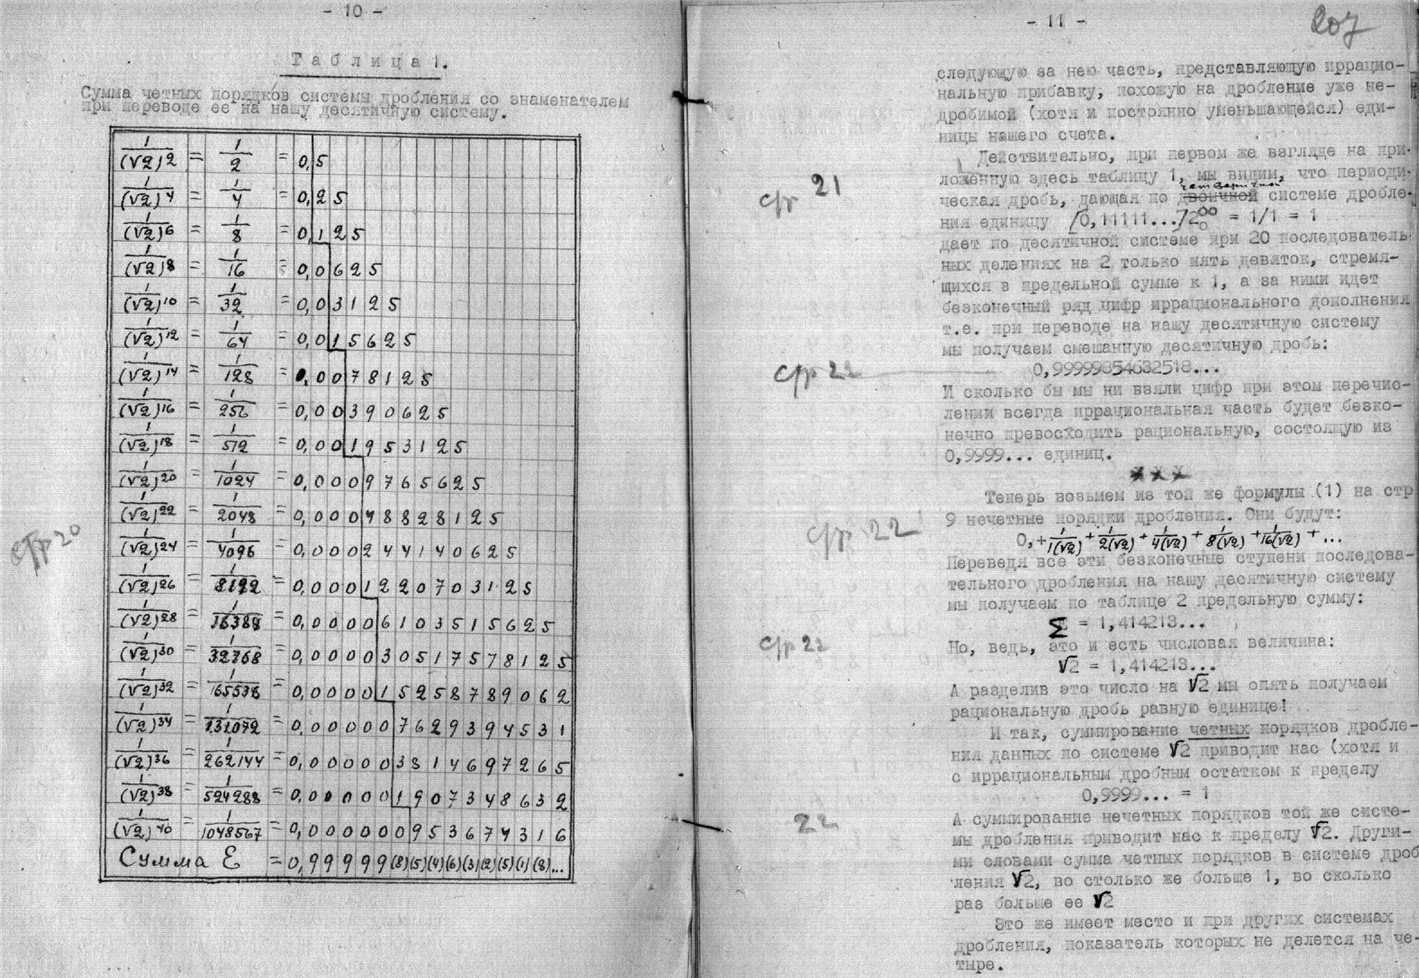 - 10 -
Таблица 1.
Сумма четных порядков системы дробления со знаменателем
при переводе ее на нашу десятичную систему.
1/(√2)2 = 1/2 = 0,5
1/(√2)4 = 1/4 = 0,25
1/(√2)6 = 1/8 = 0,125
1/(√2)8 = 1/16 = 0,0625
1/(√2)10 = 1/32 = 0,03125
1/(√2)12 = 1/64 = 0,015625
1/(√2)14 = 1/128 = 0,0078125
1/(√2)16 = 1/256 = 0,00390625
1/(√2)18 = 1/512 = 0,001953125
1/(√2)20 = 1/1024 = 0,0009765625
1/(√2)22 = 1/2048 = 0,00048828125
1/(√2)24 = 1/4096 = 0,000244140625
1/(√2)26 = 1/8192 = 0,0001220703125
1/(√2)28 = 1/16384 = 0,00006103515625
1/(√2)30 = 1/32768 = 0,000030517578125
1/(√2)32 = 1/165536 = 0,000015258789062
1/(√2)34 = 1/131072 = 0,000007629394531
1/(√2)36 = 1/262144 = 0,000003814697265
1/(√2)38 = 1/524288 = 0,000001907348632
1/(√2)40 = 1/1048567 = 0,000000953674316
Сумма Ɛ = 0,99999(8)(5)(4)(6)(3)(2)(5)(1)(8)...
стр 20
- 11 -
207
следующую за нею часть, представляющую иррацио-
нальную прибавку, похожую на дробление уже не-
дробимой (хотя и постоянно уменьшающейся) еди-
ницы нашего счета.
Действительно, при первом же взгляде на при-
ложенную здесь таблицу 1, мы видим, что периоди-
ческая дробь, дающая по двоичной системе дробле-
ния единицу [0,11111...]2 = 1/1 = 1
дает по десятичной системе при 20 последователь-
ных делениях на 2 только пять девяток, стремя-
щихся в предельной сумме к 1, а за ними идет
безконечный ряд цифр иррационального дополнения
т.е. при переводе на нашу десятичную систему
мы получаем смешанную десятичную дробь:
0,99999854632518...
И сколько бы мы ни взяли цифр при этом перечис-
лении всегда иррациональная часть будет безко-
нечно превосходить рациональную, состоящую из
0,9999... единиц.
ххх
Теперь возьмем из той же формулы (1) на стр
9 нечетные порядки дробления. Они будут:
0,+1/1(√2)+1/2(√2)+1/4(√2)+1/8(√2)+1/16(√2)+...
Переведя все эти безконечные ступени последова-
тельного дробления на нашу десятичную систему
мы получаем по таблице 2 предельную сумму:
Σ = 1,414213...
Но, ведь, это и есть числовая величина:
√2 = 1,414213...
А разделив это число на √2 мы опять получаем
рациональную дробь равную единице!
И так, суммирование четных порядков дробле-
ния данных по системе √2 приводит нас (хотя и
с иррациональным дробным остатком к пределу
0,9999... = 1
А суммирование нечетных порядков той же систе-
мы дробления приводит нас к пределу √2. Други-
ми словами сумма четных порядков в системе дроб
ления √2, во столько же больше 1, во сколько
раз больше ее √2
Это же имеет место и при других системах
дробления, показатель которых не делется на че-
тыре.
стр 21
стр 22
стр 22
стр 22
22